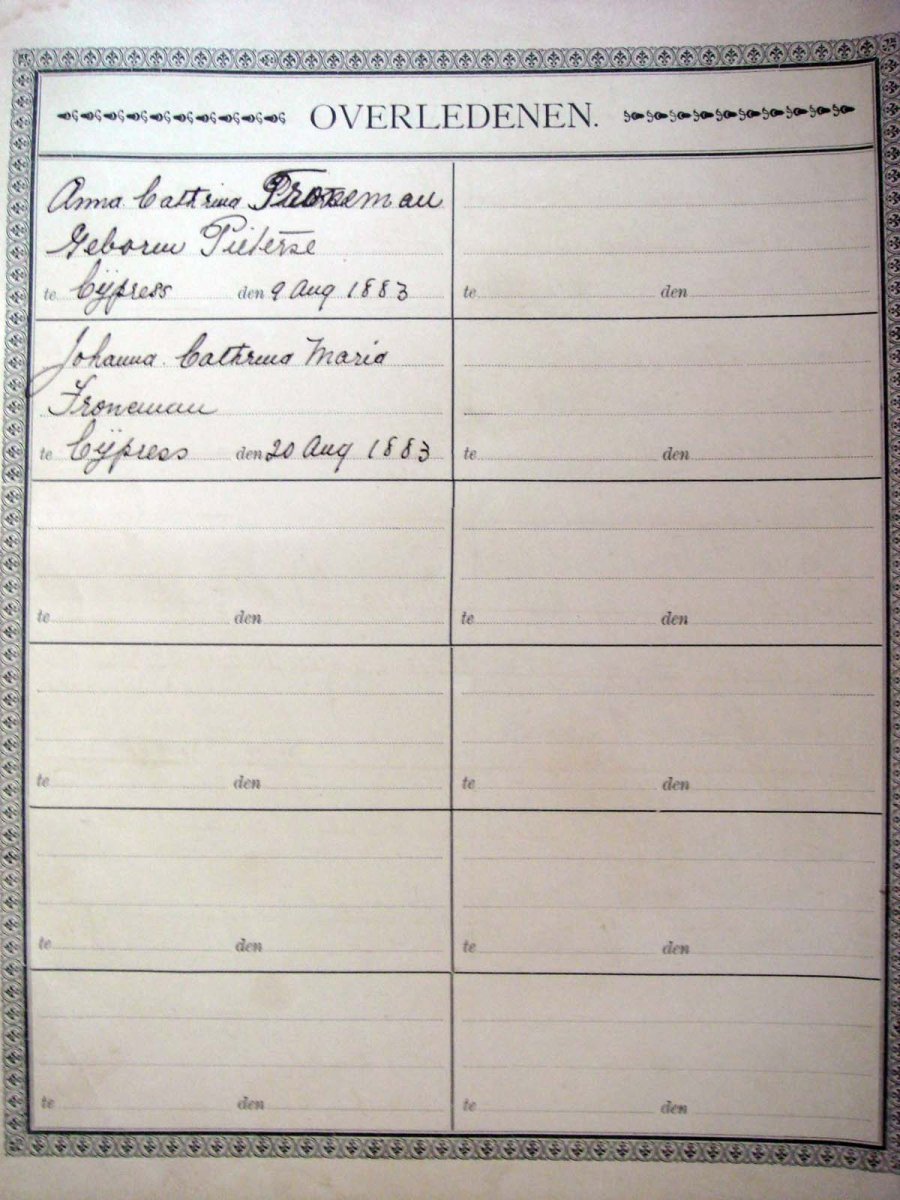 OVERLEDENEN.
Anna Cathrina Froneman
Geboren Pieterse
te Cÿpress den 9 Aug 1883
Johanna Cathrina Maria
Froneman
te Cÿpress den 20 Aug 1883
te den
te den
te den
te den
te den
te den
te den
te den
te den
te den